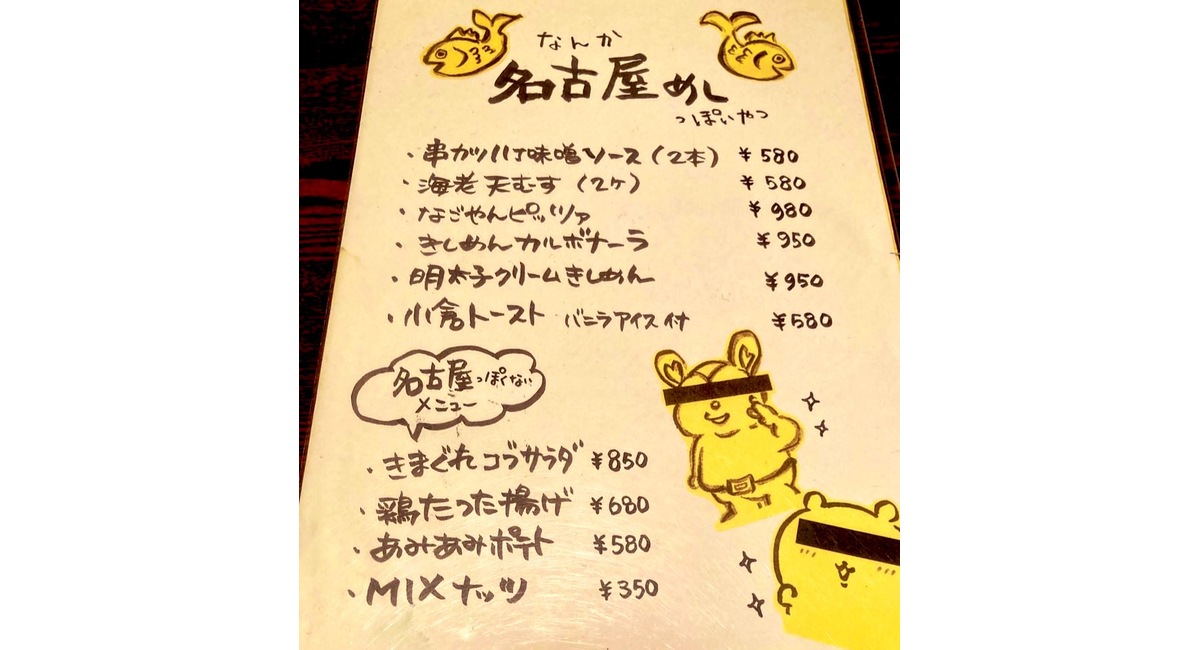 なんか
名古屋めし
っぽいやつ
・串カツ八丁味噌ソース(2本) ¥580
・海老天むす(2ヶ) ¥580
・なごやんピッツァ ¥980
・きしめんカルボナーラ ¥950
・明太子クリームきしめん ¥950
・小倉トースト バニラアイス付 ¥580
名古屋っぽくない
メニュー
・きまぐれコブサラダ ¥850
・鶏たつた揚げ ¥680
・あみあみポテト ¥580
・MIXナッツ ¥350